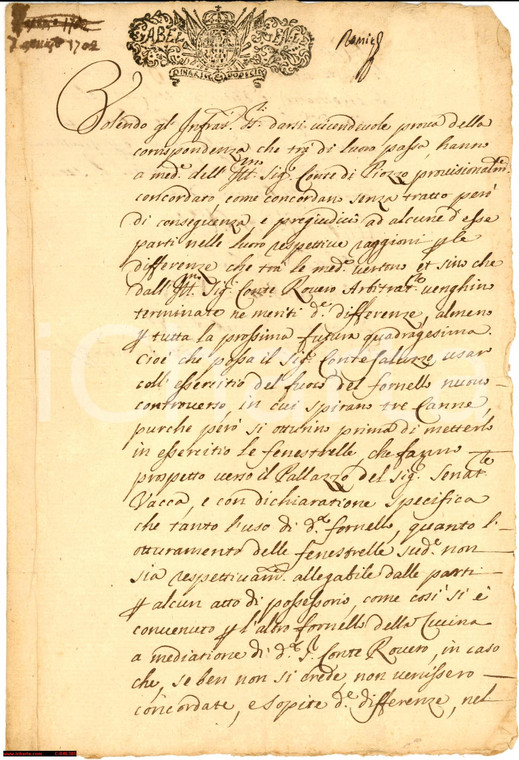 7 genaro 1702
DINARI
Volendo gl' Infras.ti SS.ri darsi vicendevole prova della
corrispondenza che trà di luoro passa, hanno
a med.e dell' Ill.mo Sig.r Conte di Piozzo provisionalm.te
concordato, come concordano senza tratto però
di conseguenza, e pregiudicio ad alcune d'esse
parti nelle luoro respettive raggioni p le
differenze che trà le med.e vertono et sino che
dall' Ill.mo Sig.r Conte Rovero Arbitrat.te venghino
terminate ne meriti d.e differenze, almeno
p tutta la prossima futura quadragesima
Cioè che possa il Sig.r Conte Saluzzo usar
coll' essercitio del fuoco del fornello nuovo
controverso, in cui spirano tre Canne,
purche però si otturino prima di metterlo
in essercitio le fenestrelle, che fanno
prospetto verso il Pallazzo del Sig.r Senat.re
Vacca, e con dichiaratione specifica
che tanto l'uso di d.o fornello, quanto l'
otturamento delle fenestrelle sud.e non
sia respettivam.te allegabile dalle parti
p alcun atto di possessorio, come così si è
convenuto p l'altro fornello della Cucina
a mediatione di d.o S.r Conte Rovero, in caso
che, se ben non si crede, non venissero
concordate, e sopite d.e differenze, nel